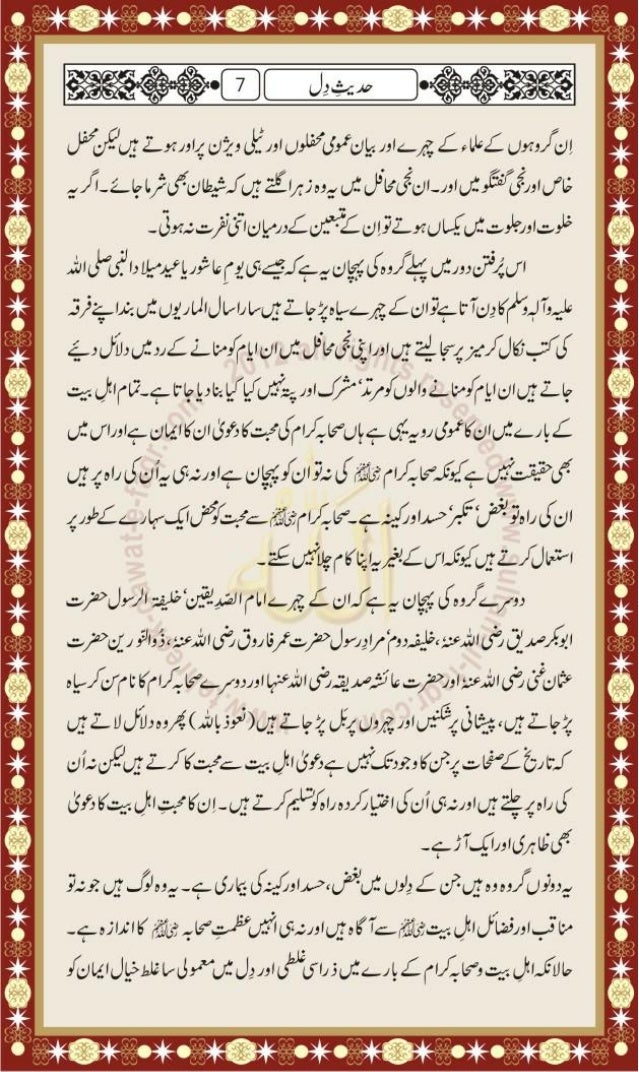 حدیثِ دِل
7
اِن گروہوں کے علماء کے چہرے اور بیان عمومی محفلوں اور ٹیلی ویژن پر اور ہوتے ہیں لیکن محفل
خاص اور نجی گفتگو میں اور۔ ان نجی محافل میں یہ وہ زہر اگلتے ہیں کہ شیطان بھی شرما جائے۔ اگر یہ
خلوت اور جلوت میں یکساں ہوتے تو اِن کے متبعین کے درمیان اتنی نفرت نہ ہوتی۔
اس پُرفتن دور میں پہلے گروہ کی پہچان یہ ہے کہ جیسے ہی یومِ عاشور یا عید میلاد النبی صلی اللہ
علیہ وآلہٖ وسلم کا دِن آتا ہے تو ان کے چہرے سیاہ پڑ جاتے ہیں سارا سال الماریوں میں بند اپنے فرقہ
کی کتب نکال کر میز پر سجا لیتے ہیں اور اپنی نجی محافل میں ان ایام کو منانے کے رد میں دلائل دیئے
جاتے ہیں ان ایام کو منانے والوں کو مرتد‘ مشرک اور پتہ نہیں کیا کیا بنا دیا جاتا ہے۔ تمام اہلِ بیت
کے بارے میں ان کا عمومی رویہ یہی ہے ہاں صحابہ کرام کی محبت کا دعویٰ ان کا ایمان ہے اور اس میں
بھی حقیقت نہیں ہے کیونکہ صحابہ کرام رضی اللہ عنہم کی نہ تو ان کو پہچان ہے اور نہ ہی یہ اُن کی راہ پر ہیں
ان کی راہ تو بغض‘ تکبر‘ حسد اور کینہ ہے۔ صحابہ کرام رضی اللہ عنہم سے محبت کو محض ایک سہارے کے طور پر
استعمال کرتے ہیں کیونکہ اس کے بغیر یہ اپنا کام چلا نہیں سکتے۔
دوسرے گروہ کی پہچان یہ ہے کہ ان کے چہرے امام الصّدِیقین‘ خلیفۃ الرسول حضرت
ابوبکر صدیق رضی اللہ عنہٗ، خلیفہ دوم‘ مرادِ رسول حضرت عمر فاروق رضی اللہ عنہٗ، ذُوالنّورین حضرت
عثمان غنی رضی اللہ عنہٗ اور حضرت عائشہ صدیقہ رضی اللہ عنہا اور دوسرے صحابہ کرام کا نام سن کر سیاہ
پڑ جاتے ہیں، پیشانی پر شکنیں اور چہروں پر بل پڑ جاتے ہیں (نعوذ باللہ) پھر وہ دلائل لاتے ہیں
کہ تاریخ کے صفحات پر جن کا وجود تک نہیں ہے دعویٰ اہلِ بیت سے محبت کا کرتے ہیں لیکن نہ اُن
کی راہ پر چلتے ہیں اور نہ ہی اُن کی اختیار کردہ راہ کو تسلیم کرتے ہیں۔ اِن کا محبتِ اہلِ بیت کا دعویٰ
بھی ظاہری اور ایک آڑ ہے۔
یہ دونوں گروہ وہ ہیں جن کے دِلوں میں بغض، حسد اور کینہ کی بیماری ہے۔ یہ وہ لوگ ہیں جو نہ تو
مناقب اور فضائل اہلِ بیت رضی اللہ عنہم سے آگاہ ہیں اور نہ ہی انہیں عظمتِ صحابہ رضی اللہ عنہم کا اندازہ ہے۔
حالانکہ اہلِ بیت وصحابہ کرام کے بارے میں ذرا سی غلطی اور دِل میں معمولی سا غلط خیال ایمان کو